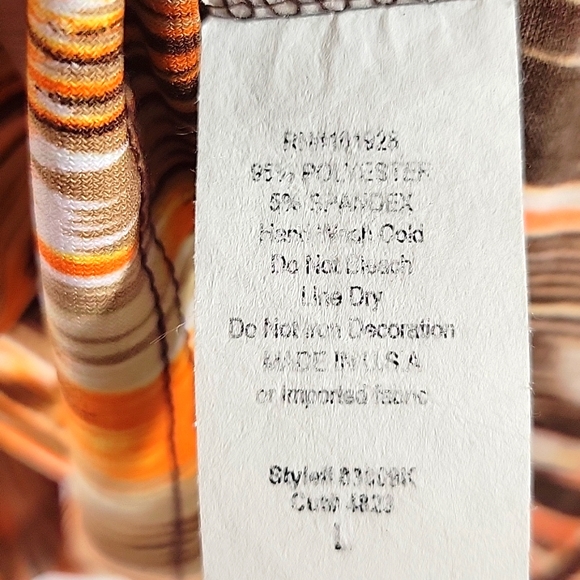 RN#101925
95% POLYESTER
5% SPANDEX
Hand Wash Cold
Do Not Bleach
Line Dry
Do Not Iron Decoration
MADE IN U.S.A
or imported fabric
Style#
Cut# 4823
L